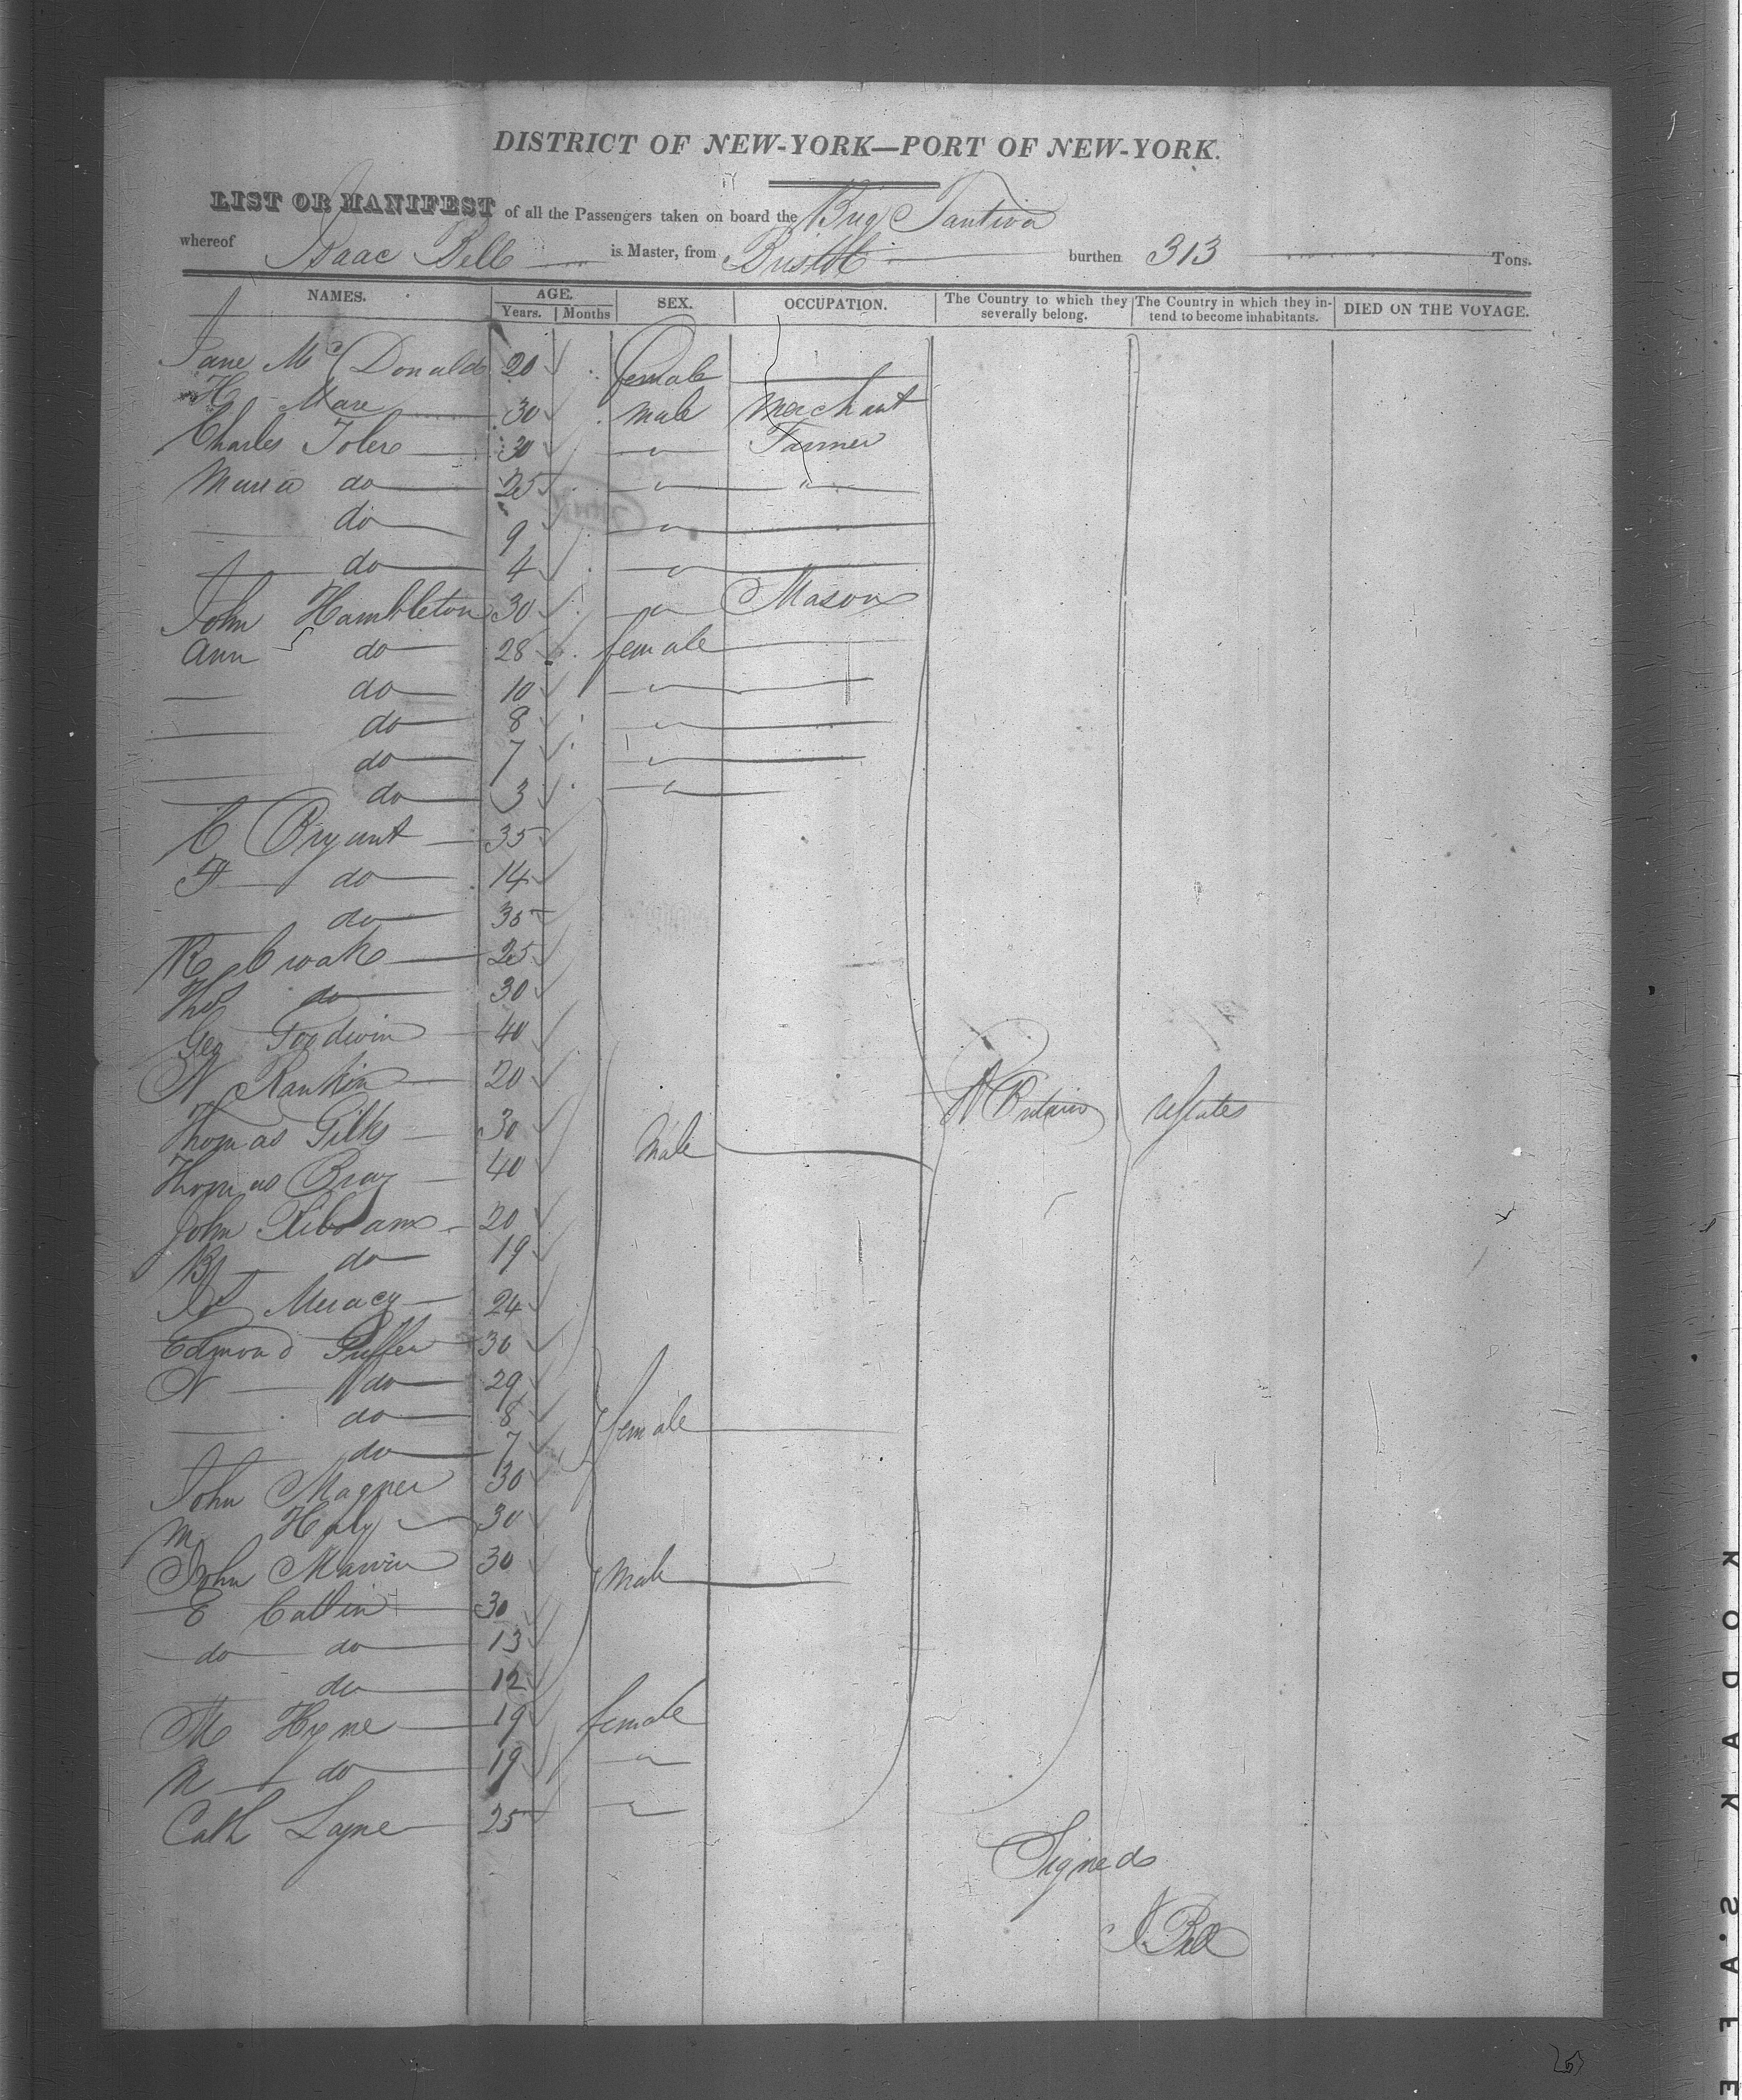 DISTRICT OF NEW-YORK—PORT OF NEW-YORK.
LIST OR MANIFEST of all the Passengers taken on board the Brig Tantivy
whereof Isaac Bell is Master, from Bristol burthen 313 Tons.
NAMES. AGE. Years. Months SEX. OCCUPATION. The Country to which they severally belong. The Country in which they intend to become inhabitants. DIED ON THE VOYAGE.
Jane Mc Donald 20 female
H Mare 30 male Merchant
Charles Toler 30 " Farmer
Maria do 25 " "
do 9 "
do 4 "
John Hambleton 30 " Mason
Ann do 28 female
do 10 "
do 8 "
do 7 "
do 3 "
C Bryant 35
F do 14
do 35
R 25
Thos do 30
Geo Goodwin 40
N Rankin 20
G Britain U States
Thomas Gilks 30
Male
Thomas Bray 40
John 20
B do 19
Jas 24
Edmond Puffer 30
N do 29
do 8
female
do 7
John Magner 30
M Haly 30
John Marvin 30
male
E Catlin 30
do do 13
do 12
M Hyne 19 female
R do 19 "
Cath Layne 25 "
Signed
I Bell
KODAK S.A.F.E